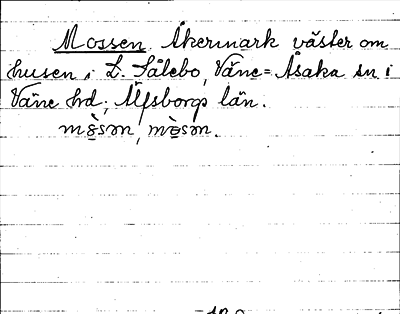 Mossen. Åkermark väster om
husen i L. Sålebo, Väne-Åsaka sn i
Väne hd, Älfsborgs län.